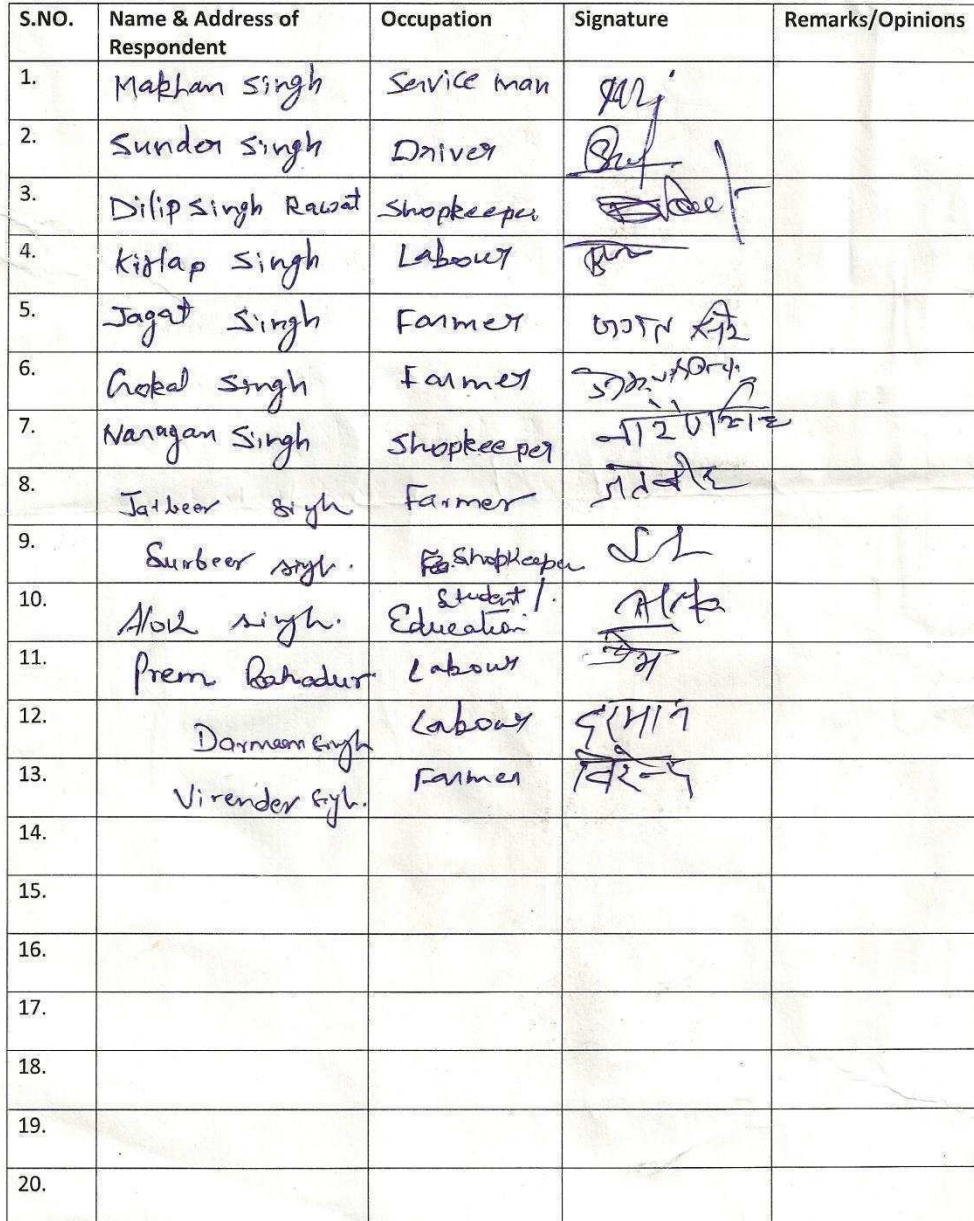 S.NO. Name & Address of Respondent Occupation Signature Remarks/Opinions
1. Makhan Singh Service man
2. Sunder Singh Driver
3. Dilip Singh Rawat Shopkeeper
4. Singh Labour
5. Jagat Singh Farmer जगत सिंह
6. Gokal Singh Farmer
7. Narayan Singh Shopkeeper
8. Jatbeer Singh Farmer
9. Surbeer Singh. Shopkeeper
10. Alok Singh. Student /. Education Alok
11. Prem Bahadur Labour प्रेम
12. Darmeen Singh Labour
13. Virender Singh. Farmer
14.
15.
16.
17.
18.
19.
20.